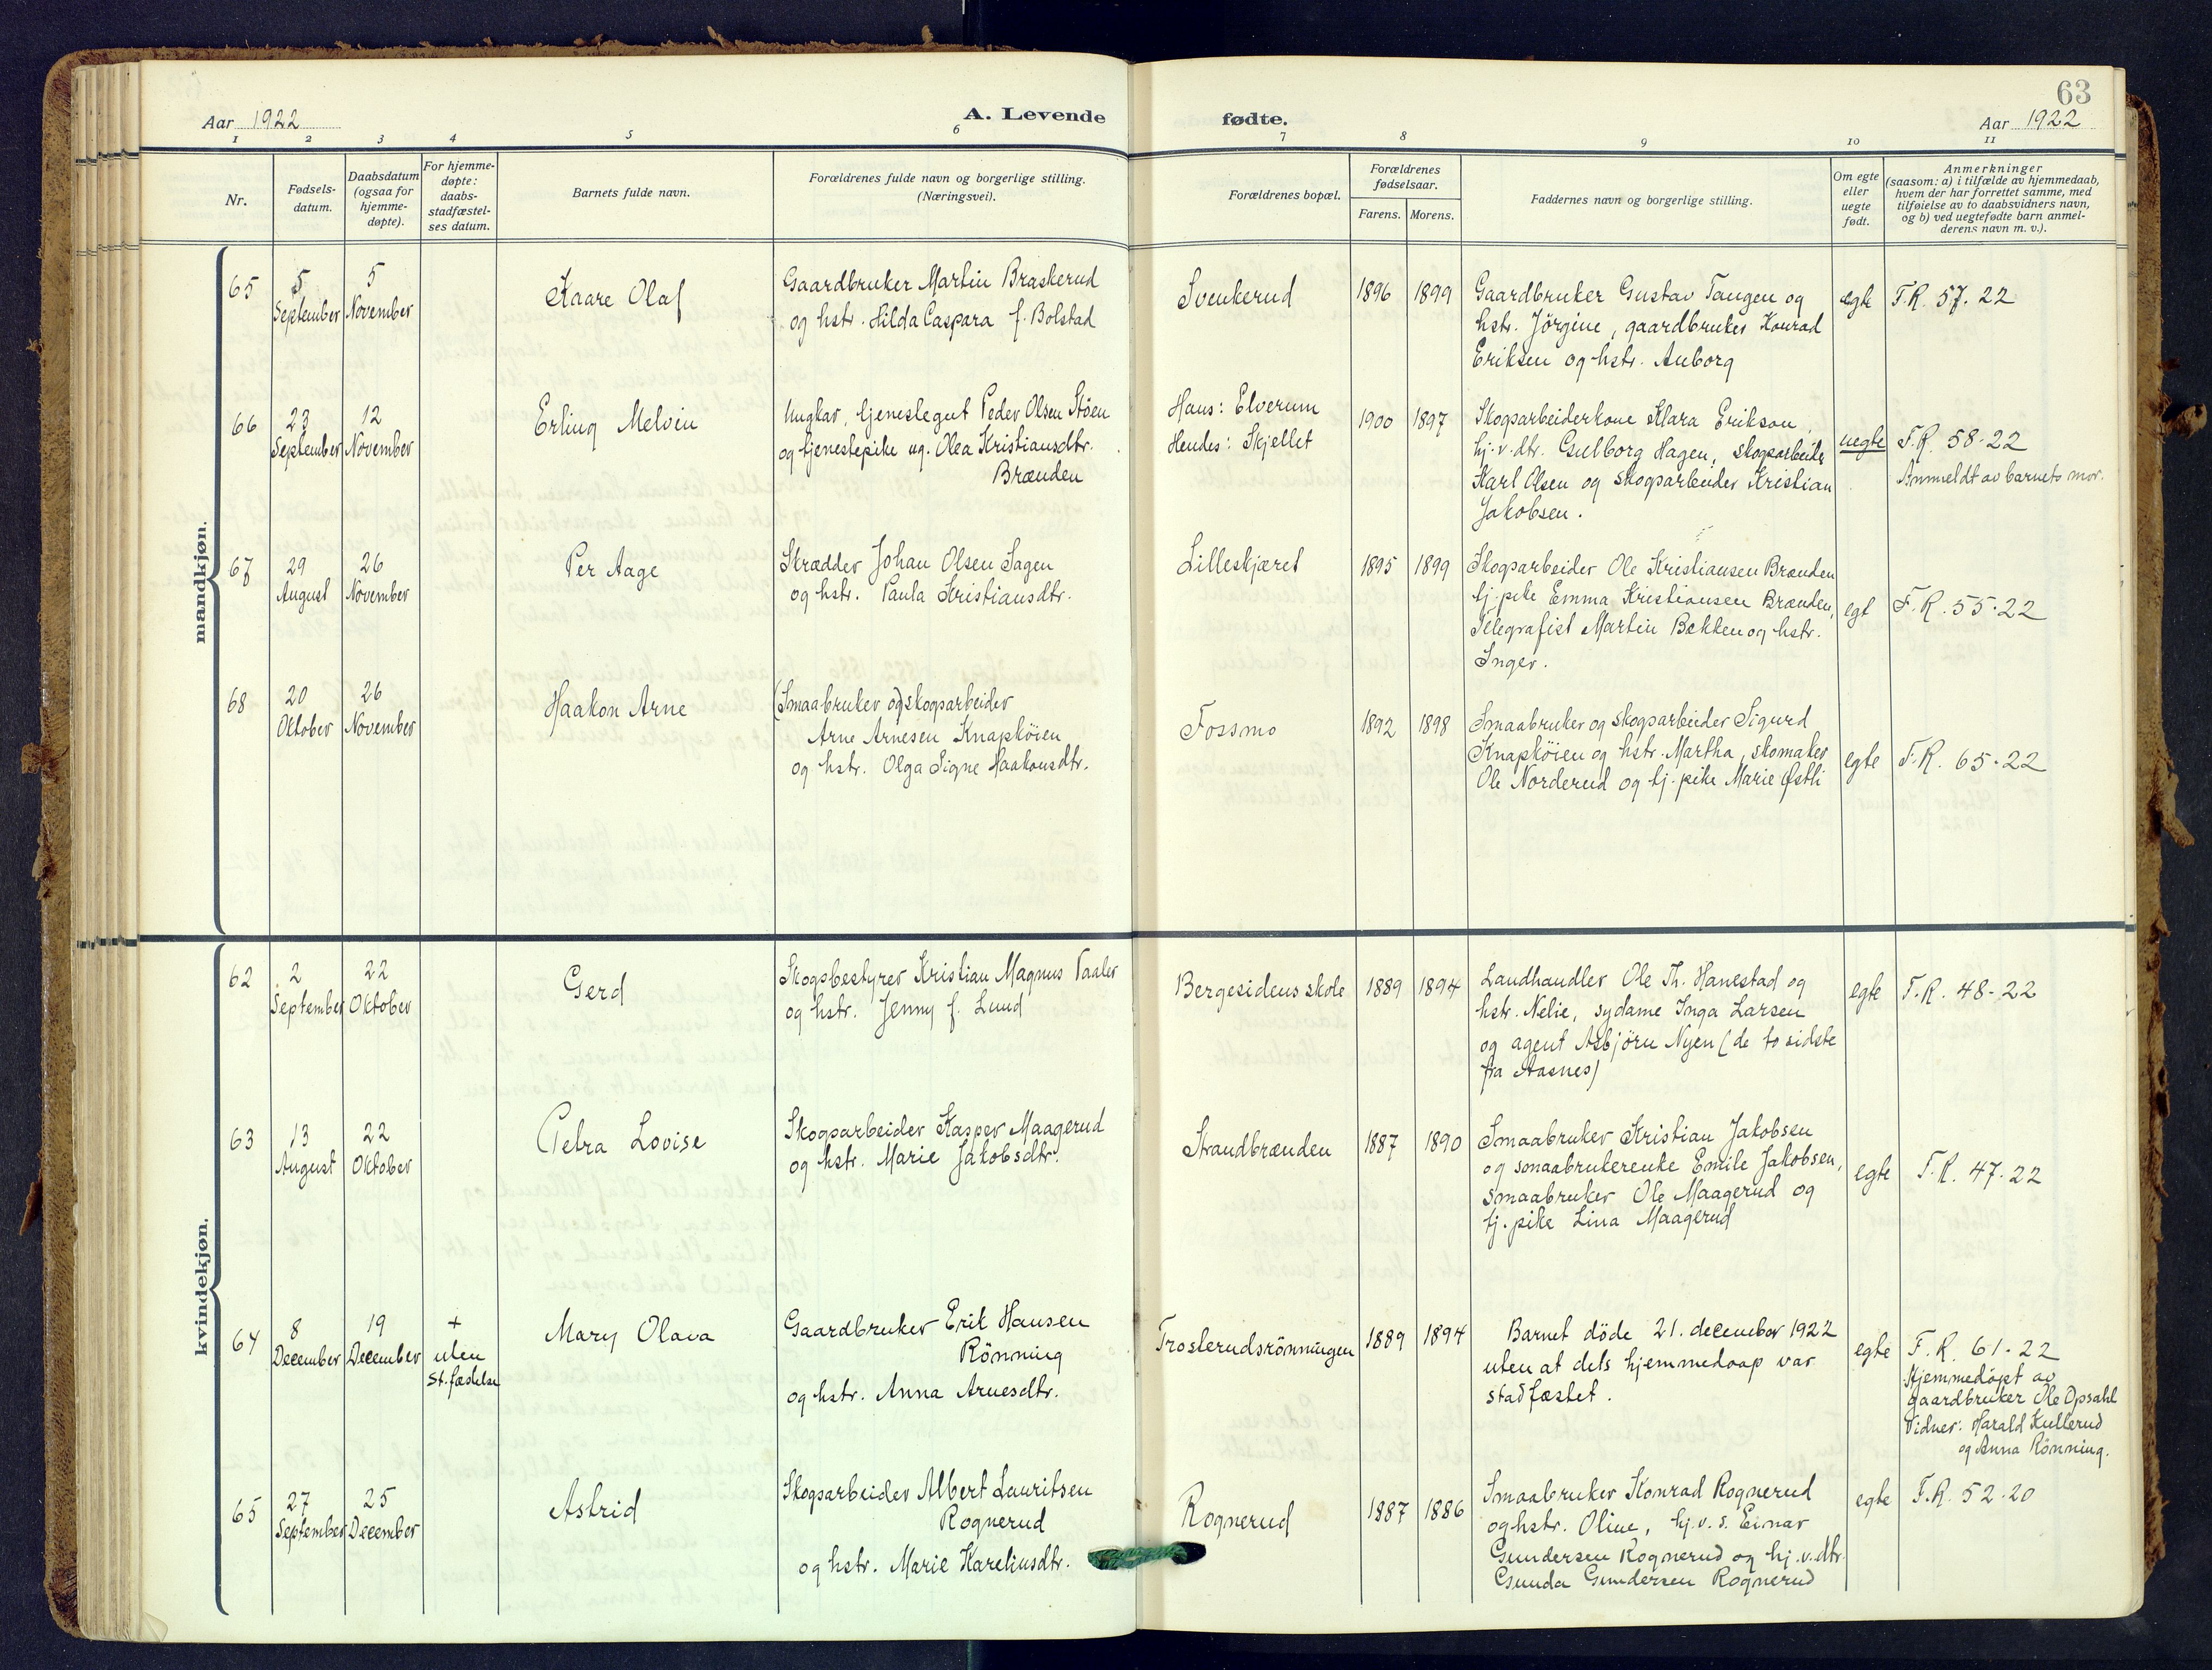 63
Aar 1922
A. Levende
fødte.
Aar 1922
1 2 3 4 5 6 7 8 9 10 11
Nr.
Fødsels-
datum.
Daabsdatum
(ogsaa for
hjemme-
døpte).
For hjemme-
døpte:
daabs-
stadfæstel-
ses datum.
Barnets fulde navn.
Forældrenes fulde navn og borgerlige stilling.
(Næringsvei).
Forældrenes bopæl.
Forældrenes
fødselsaar.
Farens. Morens.
Faddernes navn og borgerlige stilling.
Om egte
eller
uegte
født.
Anmerkninger
(saasom: a) i tilfælde av hjemmedaab,
hvem der har forrettet samme, med
tilføielse av to daabsvidners navn,
og b) ved uegtefødte barn anmel-
derens navn m. v.).
mandkjøn.
65
5
September
5
November
Kaare Olaf
Gaardbruker Martin Braskerud
og hstr. Hilda Caspara f. Bolstad
Svenkerud
1896
1899
Gaardbruker Gustav Tangen og
hstr. Jörgine, gaardbruker Konrad
Eriksen og hstr. Anborg
egte
F.R. 57. 22
66
23
September
12
November
Erling Melvin
Ungkar, tjenestegut Peder Olsen Støen
og tjenestepike ug. Olea Kristiansdtr.
Brænden
Hans: Elverum
Hendes: Skjellet
1900
1897
Skogsarbeiderkone Klara Erikson,
hj.v.dtr. Gulborg Hagen, skogsarbeider
Karl Olsen og skogsarbeider Kristian
Jakobsen.
uegte
F.R. 58-22
Anmeldt av barnets mor.
67
29
August
26
November
Per Aage
Skrædder Johan Olsen Sagen
og hstr. Paula Kristiansdtr.
Lilleskjæret
1895
1899
Skogsarbeider Ole Kristiansen Brænden
tj. pike Emma Kristiansen Brænden,
Telegrafist Martin Bækken og hstr.
Inger.
egt
F.R. 55-22
68
20
Oktober
26
November
Haakon Arne
(Smaabruker og) skogsarbeider
Arne Arnesen Knapkøien
og hstr. Olga Signe Haakonsdtr.
Fossmo
1892
1898
Smaabruker og skogsarbeider Sigurd
Knapkøien og hstr. Martha, skomaker
Ole Norderud og tj. pike Marie Østli
egte
F.R. 65-22
kvindekjøn.
62
2
September
22
Oktober
Gerd
Skogsbestyrer Kristian Magnus Vaaler
og hstr. Jenny f. Lund
Bergesidens skole
1889
1894
Landhandler Ole Th. Hanestad og
hstr. Nelie, sydame Inga Larsen
og agent Asbjörn Nyen (de to sidste
fra Aasnes)
egte
F.R. 48-22
63
13
August
22
Oktober
Petra Lovise
Skogsarbeider Kasper Maagerud
og hstr. Marie Jakobsdtr.
Strandbrænden
1887
1890
Smaabruker Kristian Jakobsen
og smaabrukerenke Emile Jakobsen,
smaabruker Ole Maagerud og
tj. pike Lina Maagerud
egte
F.R. 47-22
64
8
December
19
December
+
uten
st.fæstelse
Mary Olava
Gaardbruker Erik Hansen
Rönning
og hstr. Anna Arnesdtr.
Trosterudsrönningen
1889
1894
Barnet döde 21. december 1922
uten at dets hjemmedaap var
stadfæstet.
egte
F.R. 61-22
Hjemmedöpt av
gaardbruker Ole Opsahl
Vidner: Harald Kullerud
og Anna Rönning.
65
27
September
25
December
Astrid
Skogsarbeider Albert Lauritsen
Rognerud
og hstr. Marie Kareliusdtr.
Rognerud
1887
1886
Smaabruker Konrad Rognerud
og hstr. Oline, hj.v.s. Einar
Gundersen Rognerud og hj.v.dtr.
Gunda Gundersen Rognerud
egte
F.R. 52-20